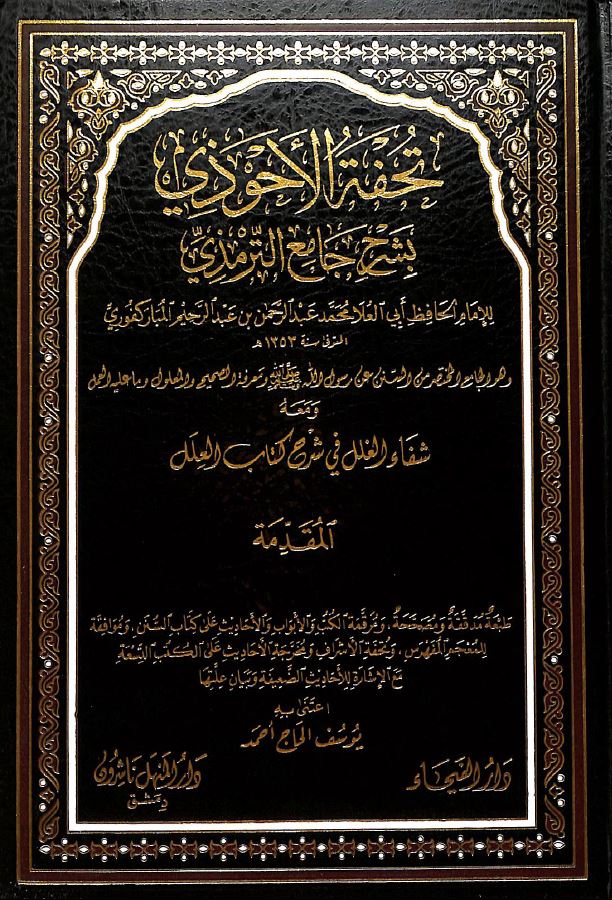 تُحْفَةُ الأَحْوَذِي
بِشَرْحِ جَامِعِ التِّرْمِذِيِّ
لِلإِمَامِ الحَافِظِ أَبِي العُلَا مُحَمَّد عَبْدِ الرَّحْمٰنِ بْنِ عَبْدِ الرَّحِيْمِ المُبَارَكْفُورِيِّ
المتوفى سنة ١٣٥٣ هـ
وهو الجامع المختصر من السنن عن رسول الله ﷺ ومعرفة الصحيح والمعلول وما عليه العمل
وَمَعَهُ
شفاء الغلل في شرح كتاب العِلَل
المُقَدِّمَة
طَبْعَةٌ مُدَقَّقَةٌ وَمُصَحَّحَةٌ، وَمُرَقَّمَةُ الكُتُبِ وَالأَبْوَابِ وَالأَحَادِيثِ عَلَى كِتَابِ السُّنَنِ، وَمُوَافِقَة
لِلْمُعْجَمِ المُفَهْرَسِ، وَتُحْفَةِ الأَشْرَافِ وَمُخَرَّجَةِ الأَحَادِيثِ عَلَى الكُتُبِ التِّسْعَةِ
مَعَ الإِشَارَةِ لِلأَحَادِيثِ الضَّعِيفَةِ وَبَيَانِ عِلَّتِهَا
اعْتَنَى بِهِ
يُوسُف الحَاج أحمَد
دَارُ الفَيْحَاء
دَارُ المَنْهَل نَاشِرُون
دِمَشْق